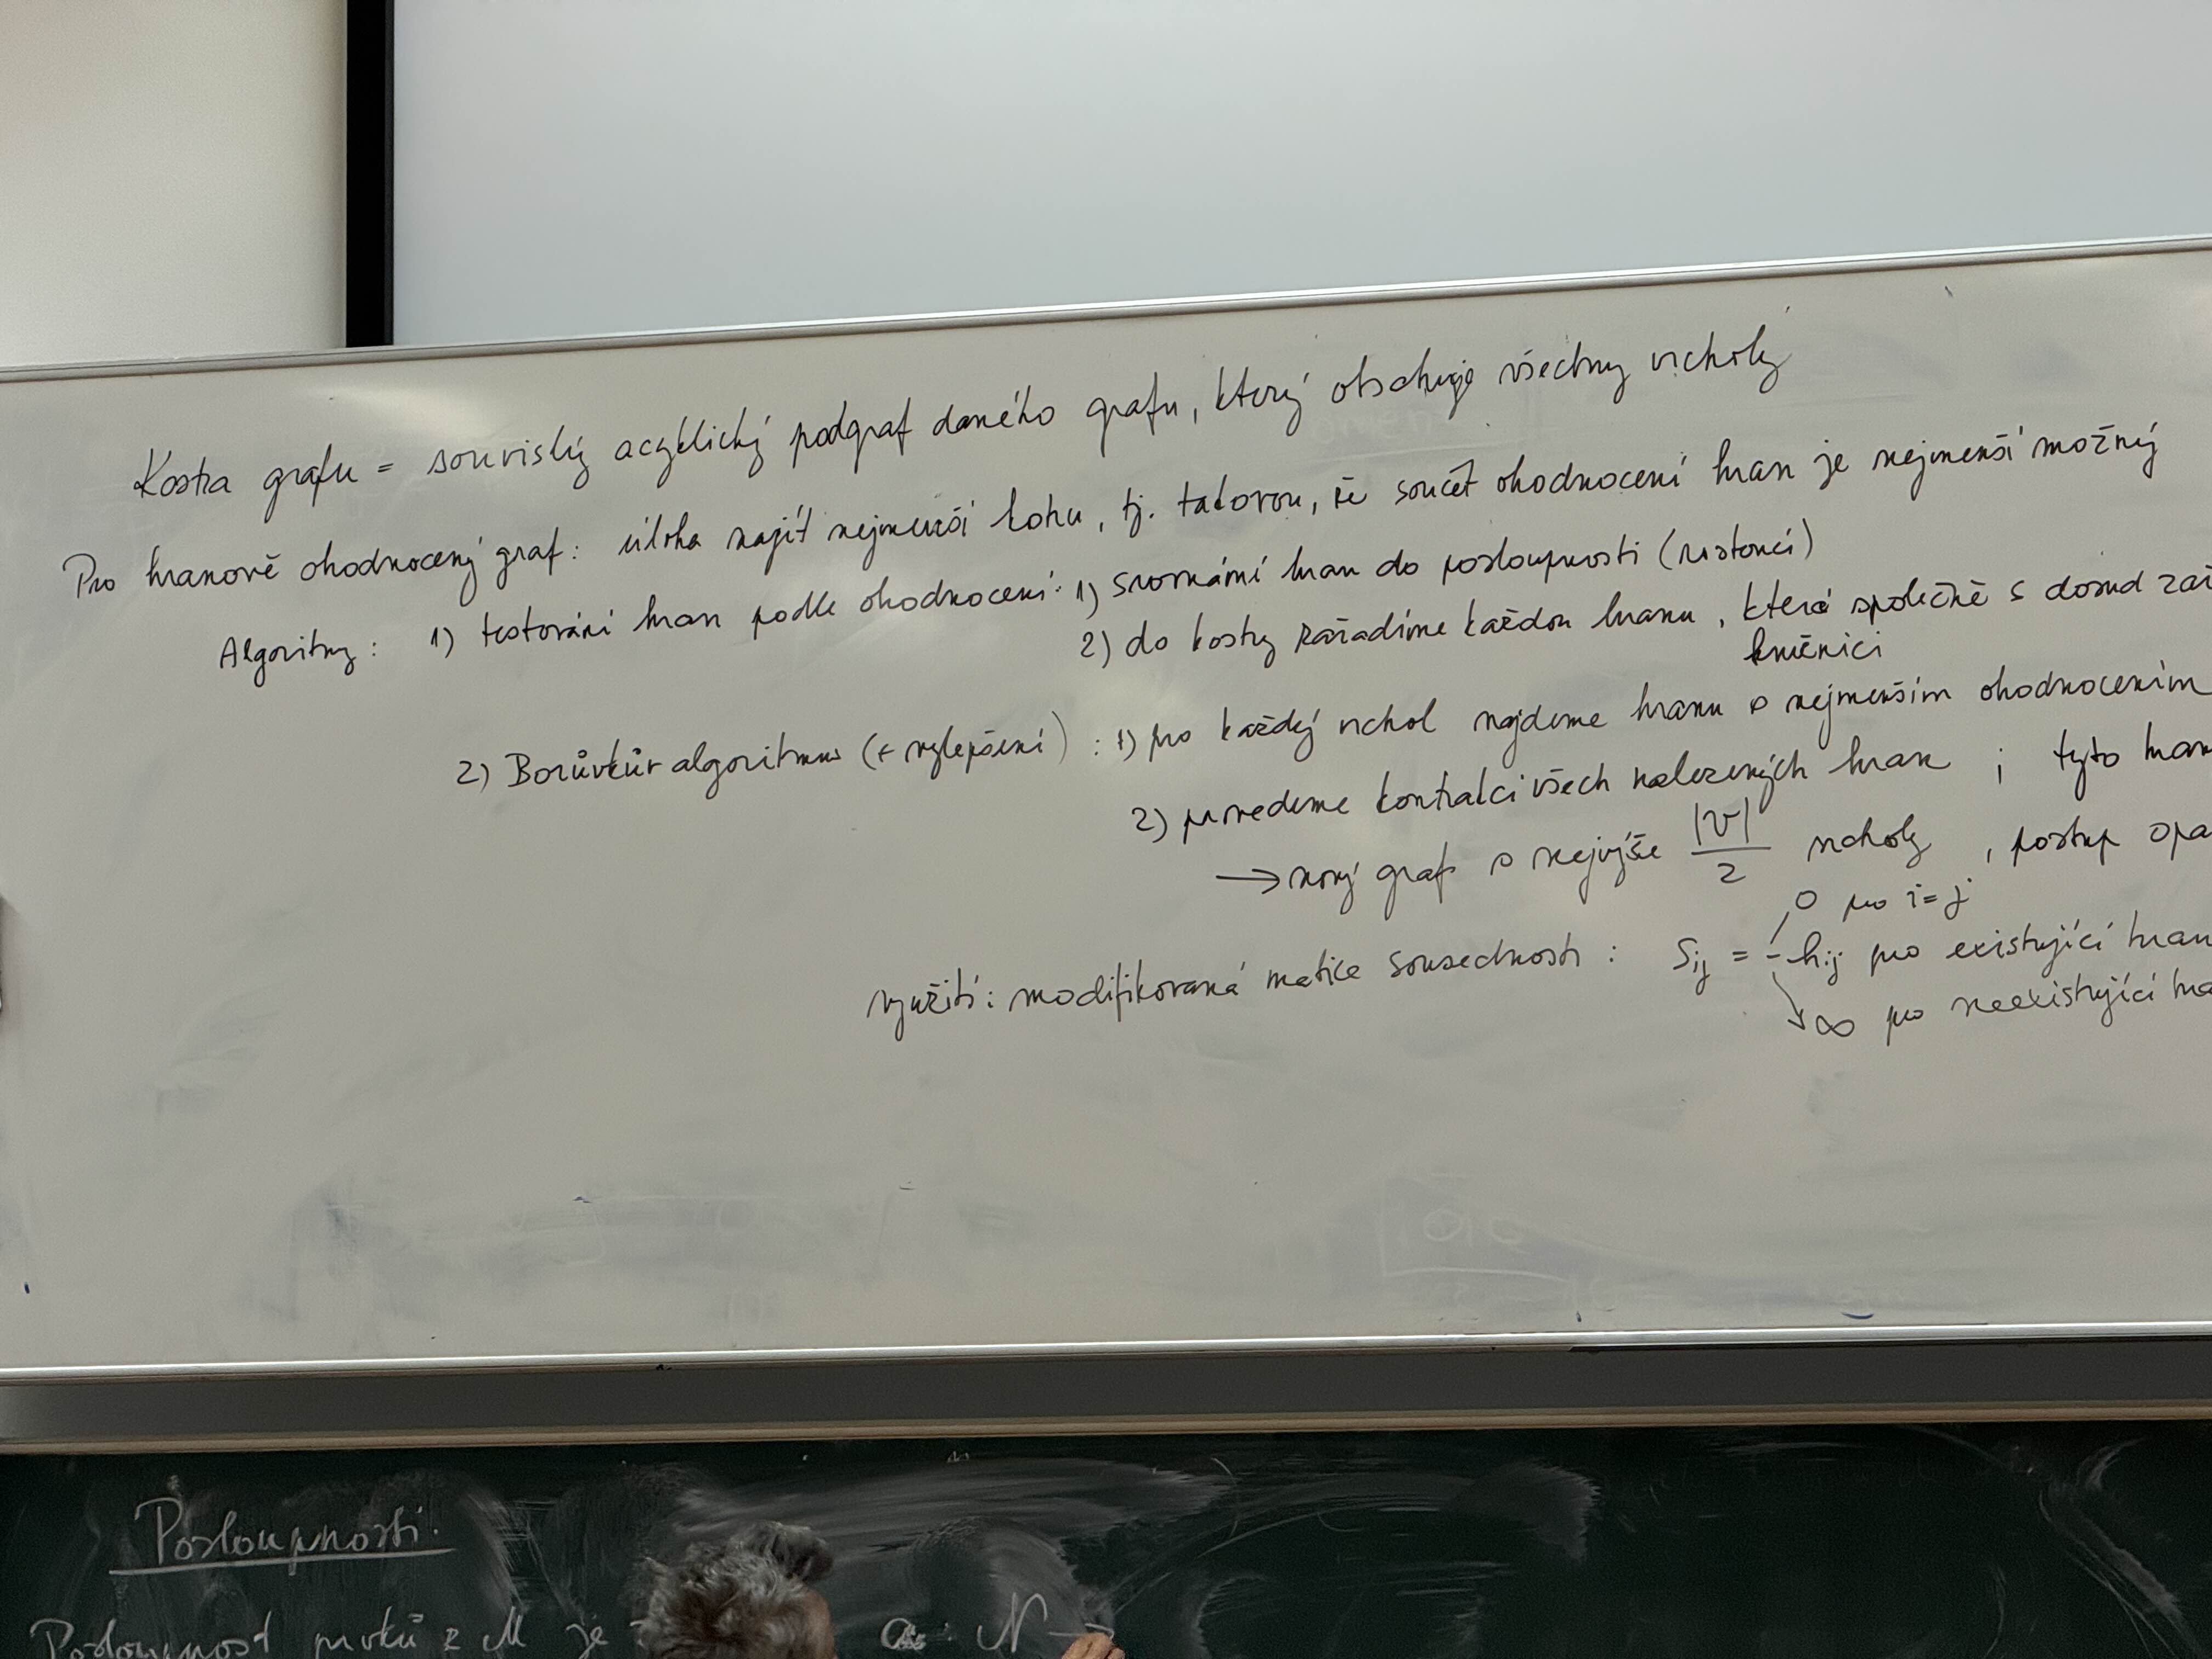 Kostra grafu = souvislý acyklický podgraf daného grafu, který obsahuje všechny vrcholy
Pro hranově ohodnocený graf: úloha najít nejmenší kostru, tj. takovou, že součet ohodnocení hran je nejmenší možný
Algoritmy: 1) testování hran podle ohodnocení: 1) srovnání hran do posloupnosti (rostoucí)
2) do kostry zařadíme každou hranu, která společně s dosud zař
kružnici
2) Borůvkův algoritmus (+ vylepšení): 1) pro každý vrchol najdeme hranu s nejmenším ohodnocením
2) provedeme kontrakci všech nalezených hran ; tyto hran
→ nový graf s nejvýše |V|/2 vrcholy, postup opa
0 pro i=j
využití: modifikovaná matice sousednosti: Sij = hij pro existující hran
∞ pro neexistující hra
Posloupnosti.
Posloupnost prvků z M je a: N →